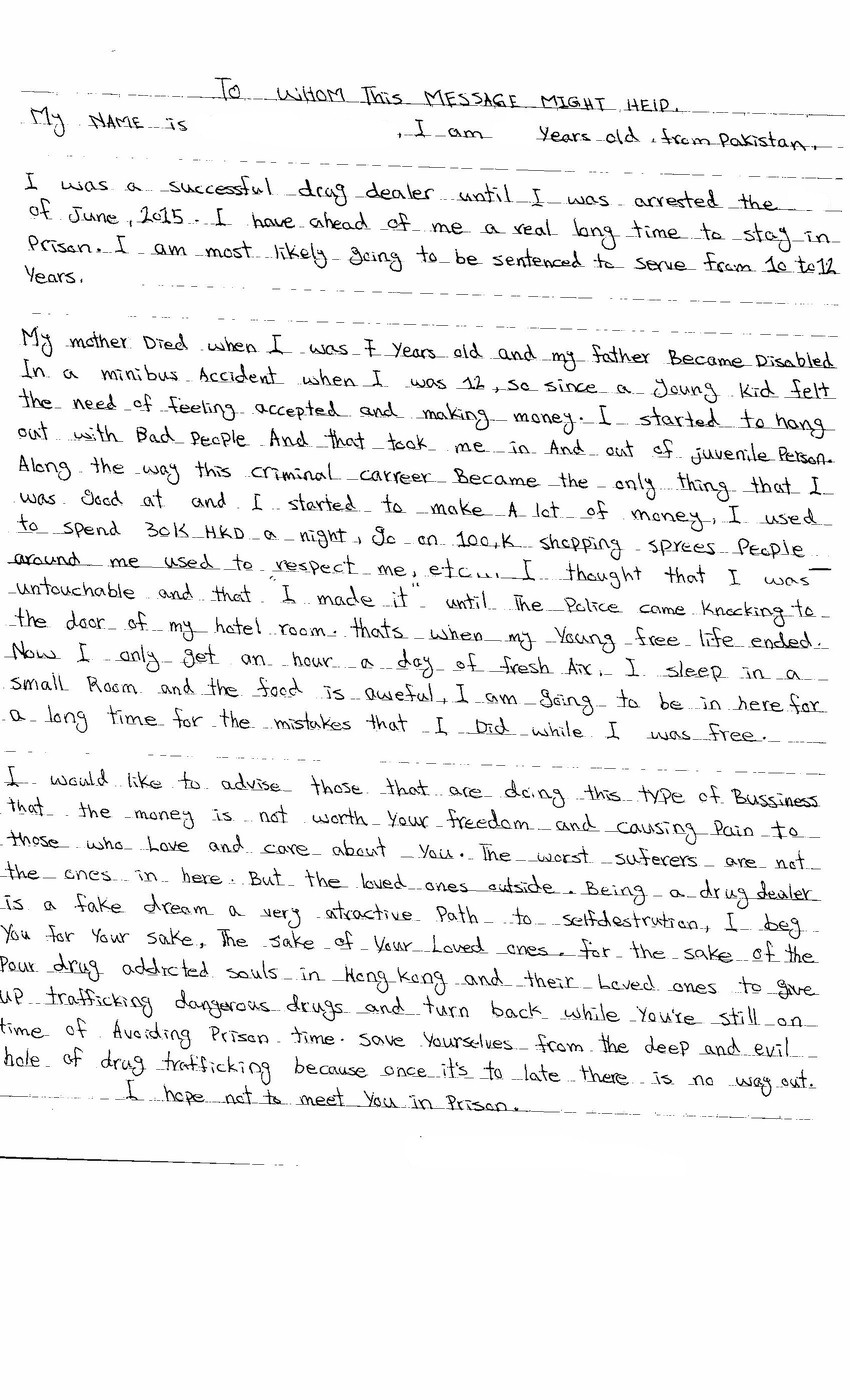 To WHOM This MESSAGE MIGHT HElP.
My NAME is , I am Years old , from Pakistan.
I was a successful drag dealer until I was arrested the
of June, 2015. I have ahead of me a real long time to stay in
Prison. I am most likely going to be sentenced to serve from 10 to 12
Years.
My mother Died when I was 7 Years old and my father Became Disabled
In a minibus Accident when I was 12, so since a young kid felt
the need of feeling accepted and making money. I started to hang
out with Bad People And that took me in And out of juvenile Person.
Along the way this criminal carreer Became the only thing that I
was good at and I started to make A lot of money, I used
to spend 30K HKD a night, go on 100,K shopping sprees People
around me used to respect me, etc... I thought that I was
untouchable and that "I made it" until The Police came Knocking to
the door of my hotel room. thats when my Young free life ended.
Now I only get an hour a day of fresh Air. I sleep in a
small Room and the food is aweful, I am going to be in here for
a long time for the mistakes that I Did while I was free.
I would like to advise those that are doing this type of Bussiness
that the money is not worth Your freedom and causing Pain to
those who Love and care about You. The worst suferers are not
the ones in here. But the loved ones outside. Being a drug dealer
is a fake dream a very atractive Path to selfdestrution, I beg
You for Your sake, The sake of Your Loved ones. for the sake of the
Pour drug addicted souls in Hong Kong and their Loved ones to give
up trafficking dangerous drugs and turn back while You're still on
time of Avoiding Prison time. Save Yourselves from the deep and evil
hole of drug trafficking because once it's to late there is no way out.
I hope not to meet You in Prison.